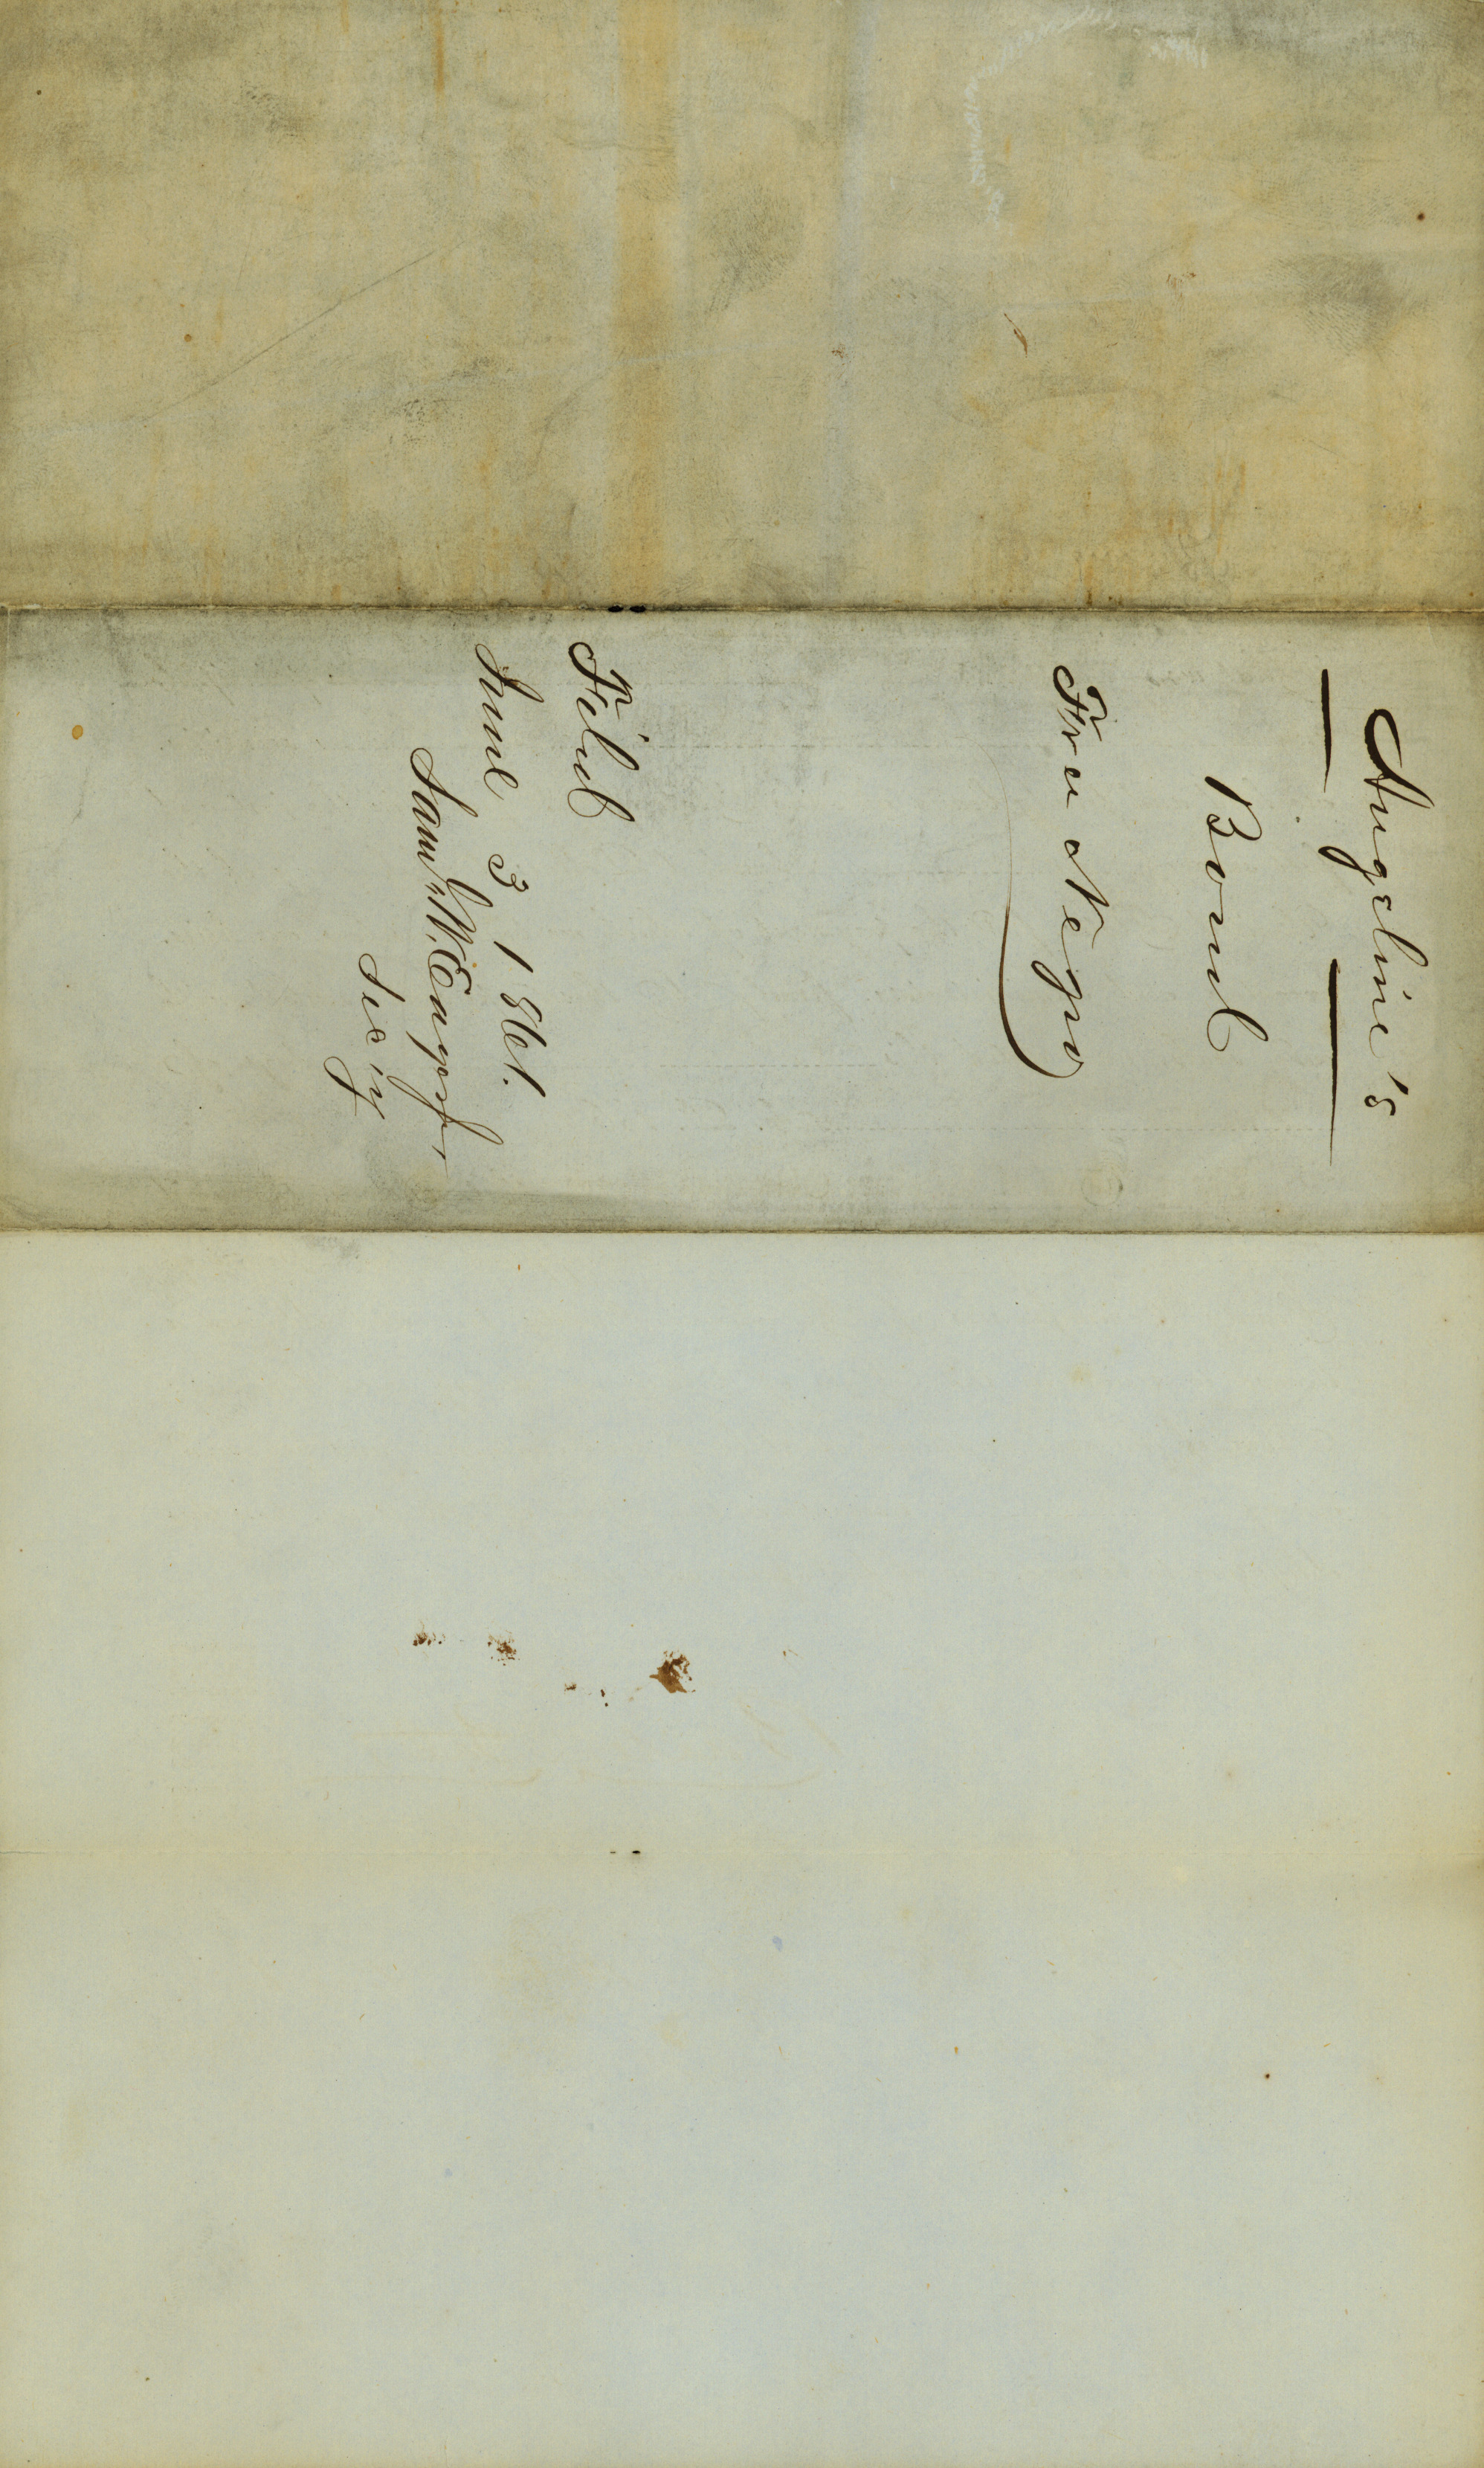 Angeline's
Bond
Free Negro
Filed
June 3 1861.
Sam'l W. Eager Jr,